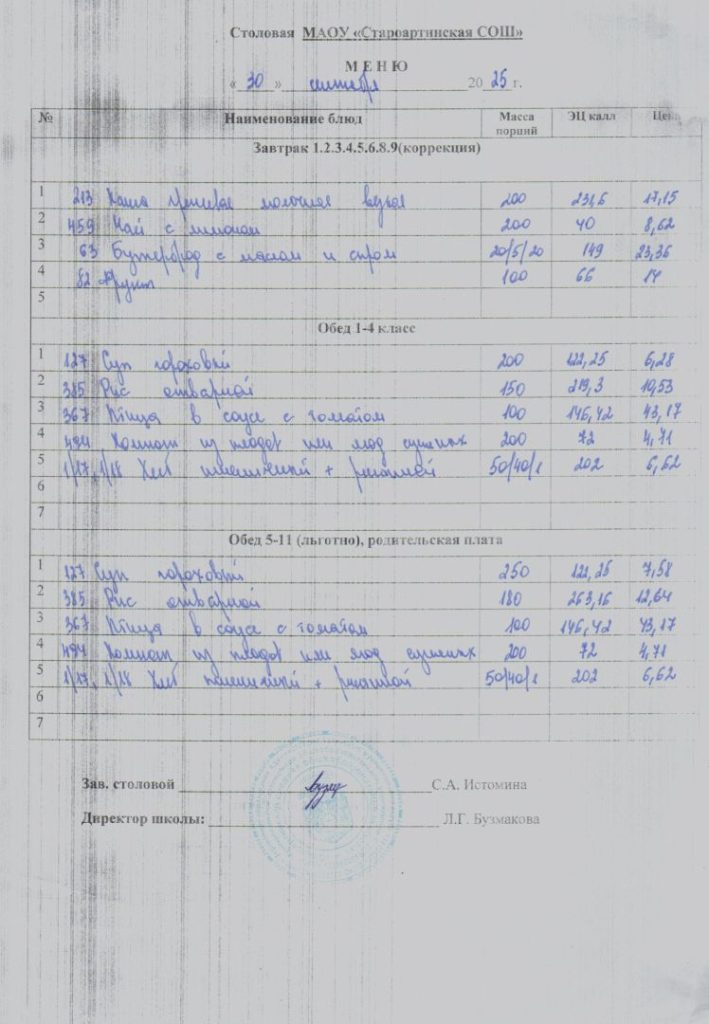 Столовая МАОУ «Староартинская СОШ»
МЕНЮ
« 30 » сентября 20 25 г.
№ Наименование блюд Масса порций ЭЦ калл Цена
Завтрак 1.2.3.4.5.6.8.9(коррекция)
1 213 Каша молочная вязкая 200 231,6 17,15
2 459 Чай с лимоном 200 40 8,62
3 63 Бутерброд с маслом и сыром 20/5/20 149 23,36
4 82 Фрукт 100 66 14
5
Обед 1-4 класс
1 127 Суп гороховый 200 122,25 6,28
2 385 Рис отварной 150 219,3 10,53
3 367 Птица в соусе с томатом 100 146,42 43,17
4 494 Компот из плодов или ягод сушеных 200 72 4,71
5 1/17, 1/18 Хлеб пшеничный + ржаной 50/40/1 202 6,62
6
7
Обед 5-11 (льготно), родительская плата
1 127 Суп гороховый 250 122,25 7,58
2 385 Рис отварной 180 263,16 12,64
3 367 Птица в соусе с томатом 100 146,42 43,17
4 494 Компот из плодов или ягод сушеных 200 72 4,71
5 1/17, 1/18 Хлеб пшеничный + ржаной 50/40/1 202 6,62
6
7
Зав. столовой С.А. Истомина
Директор школы: Л.Г. Бузмакова